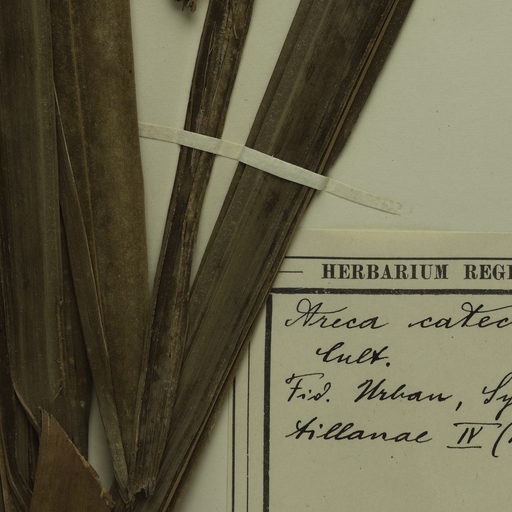 HERBARIUM REGI
Areca catec
Cult.
Fid. Urban, Sy
tillanae IV (